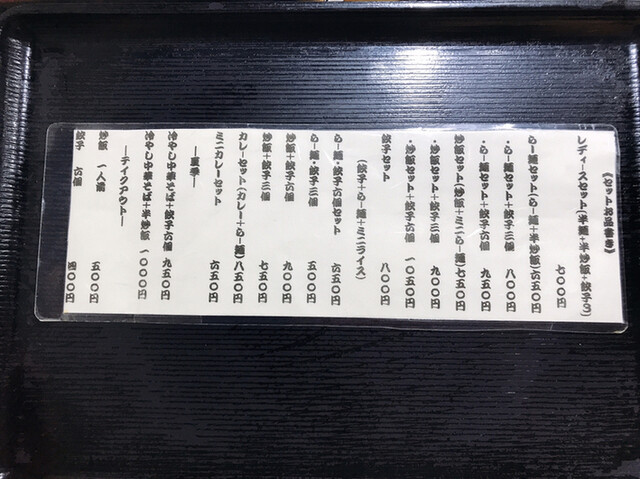 《セットお品書き》
レディースセット(半麺+半炒飯+餃子3)
七〇〇円
らー麺セット(らー麺+半炒飯)六五〇円
・らー麺セット+餃子三個 八〇〇円
・らー麺セット+餃子六個 九五〇円
炒飯セット(炒飯+ミニらー麺)七五〇円
・炒飯セット+餃子三個 九〇〇円
・炒飯セット+餃子六個 一〇五〇円
餃子セット 八〇〇円
(餃子+らー麺+ミニライス)
らー麺・餃子六個セット 六五〇円
らー麺・餃子三個 五〇〇円
炒飯+餃子六個 九〇〇円
炒飯+餃子三個 七五〇円
カレーセット(カレー+らー麺)八五〇円
ミニカレーセット 六五〇円
―夏季―
冷やし中華そば+餃子六個 九五〇円
冷やし中華そば+半炒飯 一〇〇〇円
―テイクアウト―
炒飯 一人前 五〇〇円
餃子 六個 四〇〇円